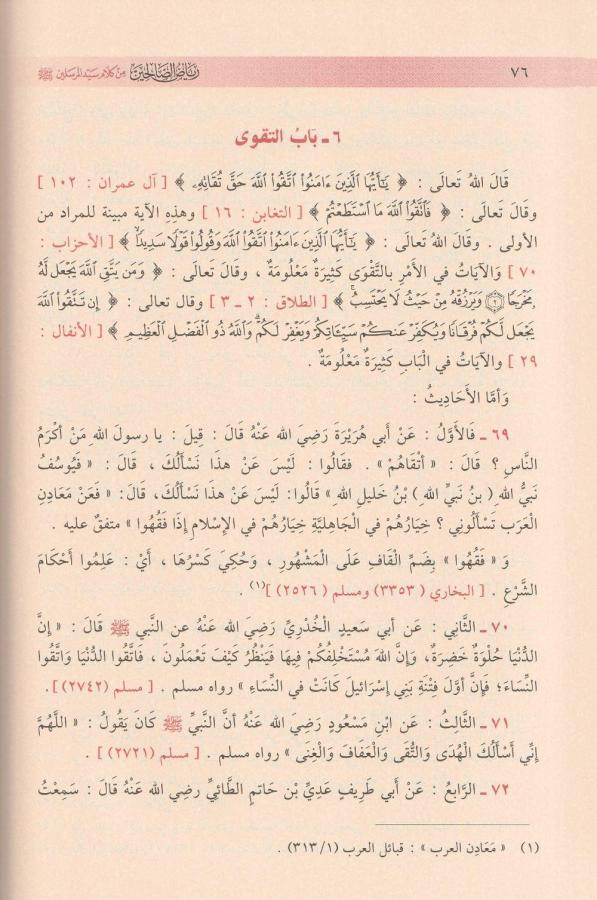 ٧٦ رياض الصالحين من كلام سيد المرسلين ﷺ
٦ ـ بَابُ التقوى
قَالَ اللهُ تَعَالَى : ﴿ يَٰٓأَيُّهَا ٱلَّذِينَ ءَامَنُوا۟ ٱتَّقُوا۟ ٱللَّهَ حَقَّ تُقَاتِهِۦ ﴾ [ آل عمران : ١٠٢ ]
وقَالَ تَعَالَى : ﴿ فَٱتَّقُوا۟ ٱللَّهَ مَا ٱسْتَطَعْتُمْ ﴾ [ التغابن : ١٦ ] وهذِهِ الآية مبينة للمراد من
الأولى . وقَالَ اللهُ تَعَالَى : ﴿ يَٰٓأَيُّهَا ٱلَّذِينَ ءَامَنُوا۟ ٱتَّقُوا۟ ٱللَّهَ وَقُولُوا۟ قَوْلًا سَدِيدًا ﴾ [ الأحزاب :
٧٠ ] وَالآيَاتُ في الأَمْرِ بالتَّقْوَى كَثِيرَةٌ مَعْلُومَةٌ ، وقَالَ تَعَالَى : ﴿ وَمَن يَتَّقِ ٱللَّهَ يَجْعَل لَّهُۥ
مَخْرَجًا ٢ وَيَرْزُقْهُ مِنْ حَيْثُ لَا يَحْتَسِبُ ﴾ [ الطلاق : ٢ ـ ٣ ] وقال تعالى : ﴿ إِن تَتَّقُوا۟ ٱللَّهَ
يَجْعَل لَّكُمْ فُرْقَانًا وَيُكَفِّرْ عَنكُمْ سَيِّـَٔاتِكُمْ وَيَغْفِرْ لَكُمْ ۗ وَٱللَّهُ ذُو ٱلْفَضْلِ ٱلْعَظِيمِ ﴾ [ الأنفال :
٢٩ ] والآيَاتُ في الْبَابِ كَثِيرَةٌ مَعْلُومَةٌ .
وَأمَّا الأَحَادِيثُ :
٦٩ ـ فَالأَوَّلُ : عَنْ أَبي هُرَيْرَةَ رَضِيَ الله عَنْهُ قَالَ : قِيلَ : يا رسولَ اللهِ مَنْ أكْرَمُ
النَّاسِ ؟ قَالَ : « أتْقَاهُمْ » . فقَالُوا : لَيْسَ عَنْ هذَا نَسْأَلُكَ ، قَالَ : « فَيُوسُفُ
نَبِيُّ اللهِ ( بنُ نَبيِّ اللهِ ) بْنُ خَليلِ اللهِ » قَالُوا: لَيْسَ عَنْ هَذَا نَسْأَلُكَ، قَالَ: « فَعَنْ مَعَادِنِ
الْعَرَبِ تَسْأَلُوني ؟ خِيَارُهُمْ في الْجَاهِليَّةِ خِيَارُهُمْ في الإِسْلامِ إذَا فَقُهُوا » متفقٌ عليه .
وَ « فَقُهُوا » بِضَمِّ الْقَافِ عَلَى الْمَشْهُورِ ، وَحُكِيَ كَسْرُهَا ، أيْ : عَلِمُوا أَحْكَامَ
الشَّرْعِ . [ البخاري ( ٣٣٥٣) ومسلم ( ٢٥٢٦) ](١) .
٧٠ ـ الثَّانِي : عَن أبي سَعِيدٍ الْخُدْرِيِّ رَضِيَ الله عَنْهُ عن النبي ﷺ قَالَ : « إِنَّ
الدُّنْيَا حُلْوَةٌ خَضِرَةٌ، وَإِنَّ اللهَ مُسْتَخْلِفُكُمْ فِيهَا فَيَنْظُرُ كَيْفَ تَعْمَلُونَ ، فَاتَّقُوا الدُّنْيَا وَاتَّقُوا
النِّسَاءَ؛ فَإِنَّ أَوَّلَ فِتْنَةِ بَنِي إِسْرَائيلَ كَانَتْ في النِّسَاءِ » رواه مسلم . [ مسلم (٢٧٤٢) ].
٧١ ـ الثَّالِثُ : عَنِ ابْنِ مَسْعُودٍ رَضِيَ الله عَنْهُ أنَّ النَّبِيَّ ﷺ كَانَ يَقُولُ : « اللَّهُمَّ
إنِّي أَسْأَلُكَ الْهُدَى وَالتُّقَى وَالْعَفَافَ وَالْغِنَى » رواه مسلم . [ مسلم (٢٧٢١) ] .
٧٢ ـ الرَّابِعُ : عَنْ أَبي طَرِيفٍ عَدِيِّ بْنِ حَاتمٍ الطَّائِيِّ رضي الله عَنْهُ قَالَ : سَمِعْتُ
(١) « مَعَادِن العرب » : قبائل العرب (٣١٣/١) .